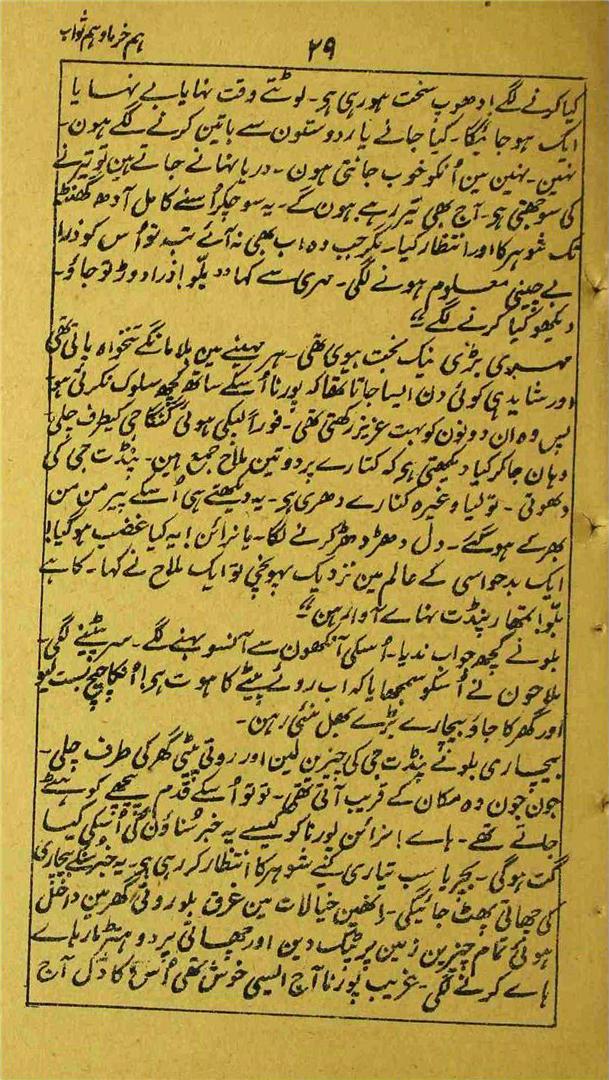 ہم خرما و ہم ثواب
۲۹
کیا کرنے لگے! دھوپ سخت ہو رہی ہی۔ لوٹتے وقت نہایا بے نہایا
ایک ہو جائیگا۔ کیا جانے یار دوستون سے باتین کرنے لگے ہون۔
نہین۔ نہین مین اُنکو خوب جانتی ہون۔ دریا نہانے جاتے ہین تو تیرنے
کی سوجھتی ہی۔ آج بھی تیر رہے ہون گے۔ یہ سوچکر اُسنے کامل آدھ گھنٹے
تک شوہر کا اور انتظار کیا۔ مگر جب وہ اب بھی نہ آئے تب تو اُس کو ذرا
بے چینی معلوم ہونے لگی۔ مہری سے کہا "بلّو! ذرا دوڑ تو جاؤ۔
دیکھو کیا کرنے لگے"
مہری بڑی نیک بخت بیوی تھی۔ ہر مہینے مین بلا مانگے تنخواہ پاتی تھی
اور شاید ہی کوئی دن ایسا جاتا تھا کہ پورنا اُسکے ساتھ کچھ سلوک نکرتی ہو
پس وہ ان دونون کو بہت عزیز رکھتی تھی۔ فوراً لپکی ہوئی گنگا جی کیطرف چلی
وہان جاکر کیا دیکھتی ہی کہ کنارے پر دو تین ملاح جمع ہین۔ پنڈت جی کی
دھوتی۔ تولیا وغیرہ کنارے دھری ہی۔ یہ دیکھتے ہی اُسکے پیر من من
بھر کے ہو گئے۔ دل دھڑ دھڑ کرنے لگا۔ یا نرائن! یہ کیا غضب ہو گیا!
ایک بدحواسی کے عالم مین نزدیک پہونچی تو ایک ملاح نے کہا۔ کاہے
بلّو! تمھار پنڈت نہاے آوا رہن"
بلو نے کچھ جواب ندیا۔ اُسکی آنکھون سے آنسو بہنے لگے۔ سر پیٹنے لگی۔
ملاحون نے اُسکو سمجھایا کہ اب روئے پیٹے کا ہوت ہی!
اور گھر کا جاؤ بیچارے بڑے بھل منئی رہن۔
بیچاری بلو نے پنڈت جی کی چیزین لین اور روتی پیٹتی گھر کی طرف چلی۔
جون جون وہ مکان کے قریب آتی تھی۔ تو تو اُسکے قدم پیچھے کو ہٹے
جاتے تھے۔ ہاے! نرائن پورنا کو کیسے یہ خبر سُناؤن گی اُسکی کیا
گت ہوگی۔ بچریا سب تیاری کئے شوہر کا انتظار کر رہی ہی۔ یہ خبر سُنکے بیچاری
کی چھاتی پھٹ جائیگی۔ انھین خیالات مین غرق بلو روتی گھر مین داخل
ہوئی تمام چیزین زمین پر پٹک دین اور چھاتی پر دو ہتڑ مار ہاے
ہاے کرنے لگی۔ غریب پورنا آج ایسی خوش تھی اُس کا دل آج